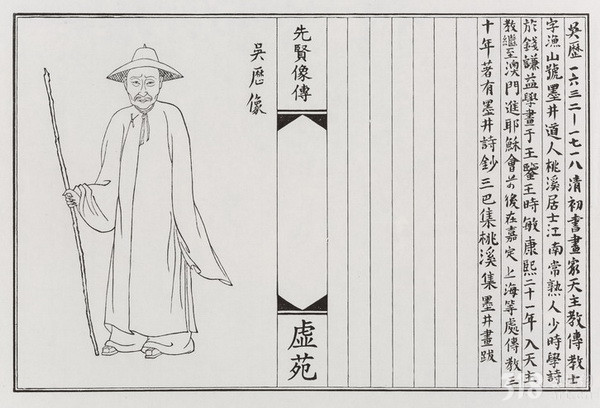 吳歷一六三二—一七一八清初書畫家天主教傳教士
字漁山號墨井道人桃溪居士江南常熟人少時學詩
於錢謙益學畫于王鑒王時敏康熙二十一年入天主
教繼至澳門進耶穌會前後在嘉定上海等處傳教三
十年著有墨井詩鈔三巴集桃溪集墨井畫跋
先賢像傳
虛苑
吳歷像